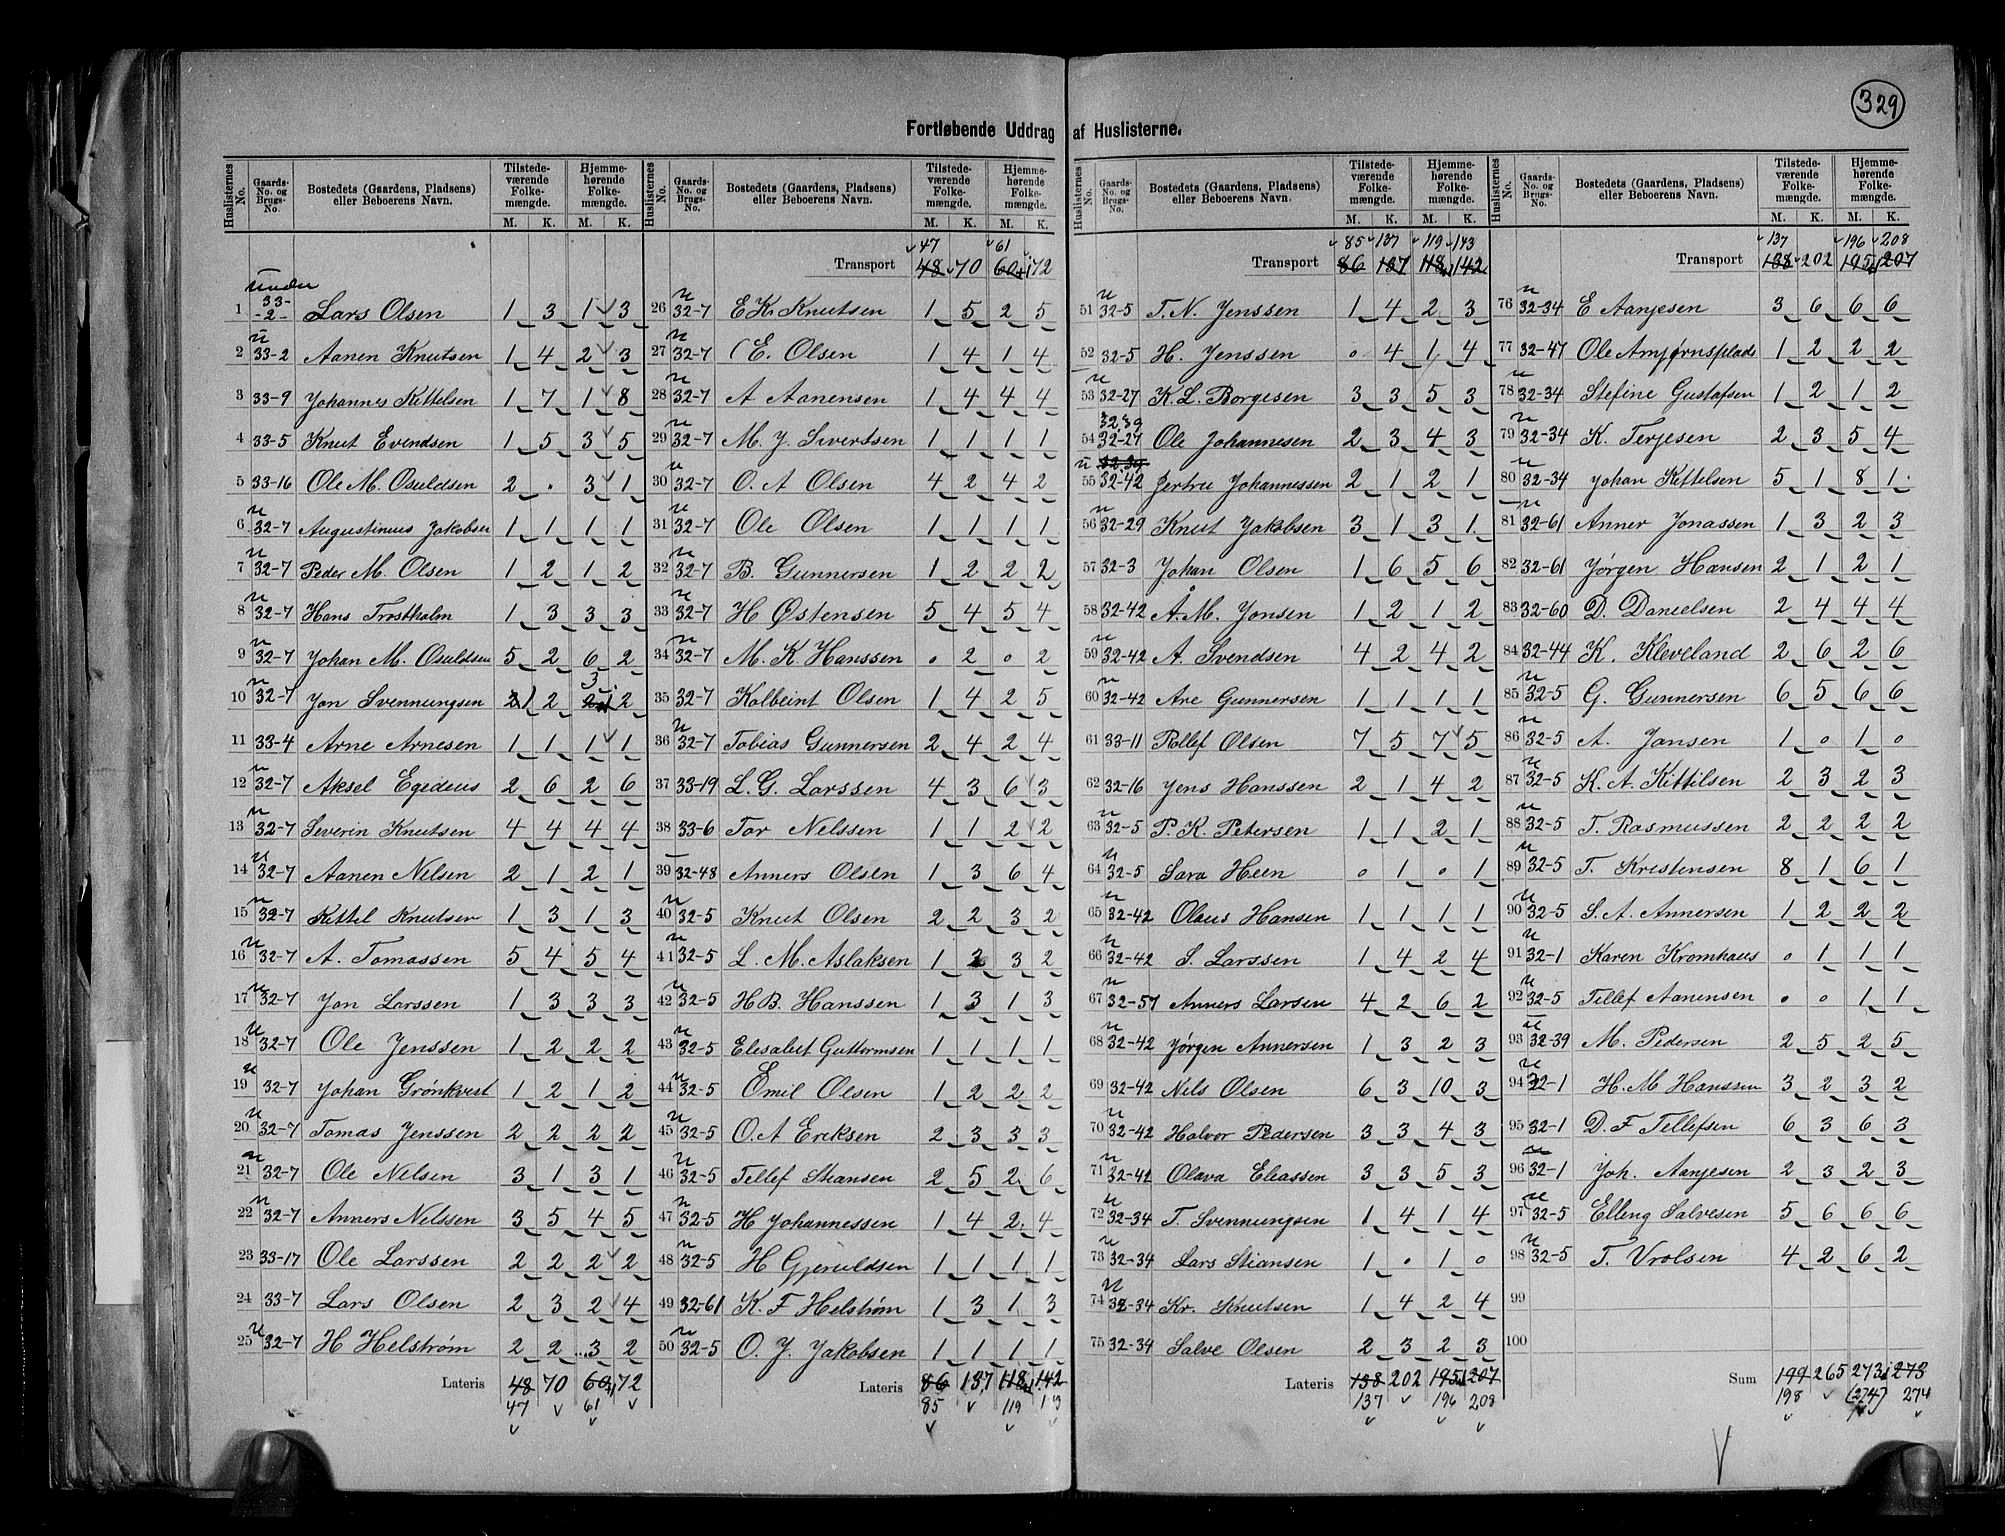 329
Fortløbende Uddrag af Huslisternes
Huslisternes No. Gaards-No. og Brugs-No. Bostedets (Gaardens, Pladsens) eller Beboerens Navn. Tilstedeværende Folkemængde. M. K. Hjemmehørende Folkemængde. M. K.
under
1 33-2 Lars Olsen 1 3 1 3
2 u 33-2 Aanen Knutsen 1 4 2 3
3 33-9 Johannes Kittelsen 1 7 1 8
4 33-5 Knut Evendsen 1 5 3 5
5 33-16 Ole M. Osuldsen 2 . 3 1
6 u 32-7 Augustinus Jakobsen 1 1 1 1
7 u 32-7 Peder M. Olsen 1 2 1 2
8 u 32-7 Hans Trostholm 1 3 3 3
9 u 32-7 Johan M. Osuldsen 5 2 6 2
10 u 32-7 Jon Svennungsen 1 2 3 2
11 33-4 Arne Arnesen 1 1 1 1
12 u 32-7 Aksel Egedeus 2 6 2 6
13 u 32-7 Severin Knutsen 4 4 4 4
14 u 32-7 Aanen Nelsen 2 1 2 1
15 u 32-7 Kittel Knutsen 1 3 1 3
16 u 32-7 A. Tomassen 5 4 5 4
17 u 32-7 Jon Larssen 1 3 3 3
18 u 32-7 Ole Jenssen 1 2 2 2
19 u 32-7 Johan Grönkvest 1 2 1 2
20 u 32-7 Tomas Jenssen 2 2 2 2
21 u 32-7 Ole Nelsen 3 1 3 1
22 u 32-7 Anners Nelssen 3 5 4 5
23 33-17 Ole Larssen 2 2 2 2
24 33-7 Lars Olsen 2 3 2 4
25 u 32-7 H Helstrøm 2 2 3 2
Lateris 48 70 60 72
47 61
Huslisternes No. Gaards-No. og Brugs-No. Bostedets (Gaardens, Pladsens) eller Beboerens Navn. Tilstedeværende Folkemængde. M. K. Hjemmehørende Folkemængde. M. K.
47 61
Transport 48 70 60 72
26 u 32-7 E K. Knutsen 1 5 2 5
27 u 32-7 E. Olsen 1 4 1 4
28 u 32-7 A Aanensen 1 4 4 4
29 u 32-7 M. J. Sivertsen 1 1 1 1
30 u 32-7 O. A Olsen 4 2 4 2
31 u 32-7 Ole Olsen 1 1 1 1
32 u 32-7 B. Gunnersen 1 2 2 2
33 u 32-7 H Østensen 5 4 5 4
34 u 32-7 M. K. Hanssen 0 2 0 2
35 32-7 Kolbeint Olsen 1 4 2 5
36 u 32-7 Tobias Gunnersen 2 4 2 4
37 33-19 L. G. Larssen 4 3 6 3
38 33-6 Tor Nelssen 1 1 2 2
39 32-48 Anners Olsen 1 3 6 4
40 u 32-5 Knut Olsen 2 2 3 2
41 u 32-5 L. M. Aslaksen 1 2 3 2
42 u 32-5 H B. Hanssen 1 3 1 3
43 u 32-5 Elesabet Guttormsen 1 1 1 1
44 u 32-5 Emil Olsen 1 2 2 2
45 u 32-5 O. A Ereksen 2 3 3 3
46 u 32-5 Tellef Stiansen 2 5 2 6
47 u 32-5 H Johannessen 1 4 2 4
48 u 32-5 H Gjeruldsen 1 1 1 1
49 32-61 K. F Helstrøm 1 3 1 3
50 u 32-5 O. J. Jakobsen 1 1 1 1
Lateris 86 137 118 142
85 119
Huslisternes No. Gaards-No. og Brugs-No. Bostedets (Gaardens, Pladsens) eller Beboerens Navn. Tilstedeværende Folkemængde. M. K. Hjemmehørende Folkemængde. M. K.
85 137 119 143
Transport 86 137 118 142
51 u 32-5 T. N. Jenssen 1 4 2 3
52 32-5 H. Jenssen 0 4 1 4
53 u 32-27 K. L. Borgesen 3 3 5 3
32,39
54 32-27 Ole Johannesen 2 3 4 3
u 32.39
55 32-42 Jertru Johannessen 2 1 2 1
56 32-29 Knut Jakobsen 3 1 3 1
57 32-3 Johan Olsen 1 6 5 6
58 32-42 Å. M. Jonsen 1 2 1 2
59 u 32-42 A. Svendsen 4 2 4 2
60 u 32-42 Are Gunnersen 1 1 1 1
61 33-11 Rollef Olsen 7 5 7 5
62 32-16 Jens Hanssen 2 1 4 2
63 u 32-5 P. K. Petersen 1 1 2 1
64 u 32-5 Sara Heen 0 1 0 1
65 32-42 Olaus Hansen 1 1 1 1
66 u 32-42 S. Larssen 1 4 2 4
67 u 32-57 Anners Larsen 4 2 6 2
68 u 32-42 Jørgen Annersen 1 3 2 3
69 32-42 Nils Olsen 6 3 10 3
70 u 32-42 Halvor Pedersen 3 3 4 3
71 u 32-42 Olava Eleassen 3 3 5 3
72 u 32-34 T. Svennungsen 1 4 1 4
73 u 32-34 Lars Stiansen 1 0 1 0
74 u 32-34 Kr. Knutsen 1 4 2 4
75 32-34 Salve Olsen 2 3 2 3
Lateris 138 202 195 207
137 196 208
Huslisternes No. Gaards-No. og Brugs-No. Bostedets (Gaardens, Pladsens) eller Beboerens Navn. Tilstedeværende Folkemængde. M. K. Hjemmehørende Folkemængde. M. K.
137 196 208
Transport 138 202 195 207
76 u 32-34 E Aanjesen 3 6 6 6
77 32-47 Ole Amjørnsplads 1 2 2 2
78 u 32-34 Stefine Gustafsen 1 2 1 2
79 u 32-34 K. Terjesen 2 3 5 4
80 u 32-34 Johan Kittelsen 5 1 8 1
81 32-61 Anner Jonassen 1 3 2 3
82 u 32-61 Jørgen Hansen 2 1 2 1
83 32-60 D. Danielsen 2 4 4 4
84 32-44 K. Kleveland 2 6 2 6
85 u 32-5 G. Gunnersen 6 5 6 6
86 u 32-5 A. Jansen 1 0 1 0
87 u 32-5 K. A. Kittilsen 2 3 2 3
88 u 32-5 T. Rasmussen 2 2 2 2
89 u 32-5 T. Krestensen 8 1 6 1
90 u 32-5 S. A. Annersen 1 2 2 2
91 u 32-1 Karen Kromhaus 0 1 1 1
92 u 32-5 Tellef Aanensen 0 0 1 1
93 u 32-39 M. Pedersen 2 5 2 5
94 u 32-1 H. M Hanssen 3 2 3 2
95 32-1 D. F Tellefsen 6 3 6 3
96 32-1 Joh. Aanjesen 2 3 2 3
97 u 32-5 Elleng Salvesen 5 6 6 6
98 u 32-5 T. Vrolsen 4 2 6 2
99
100
Sum 199 265 273 273
198 (274) 274